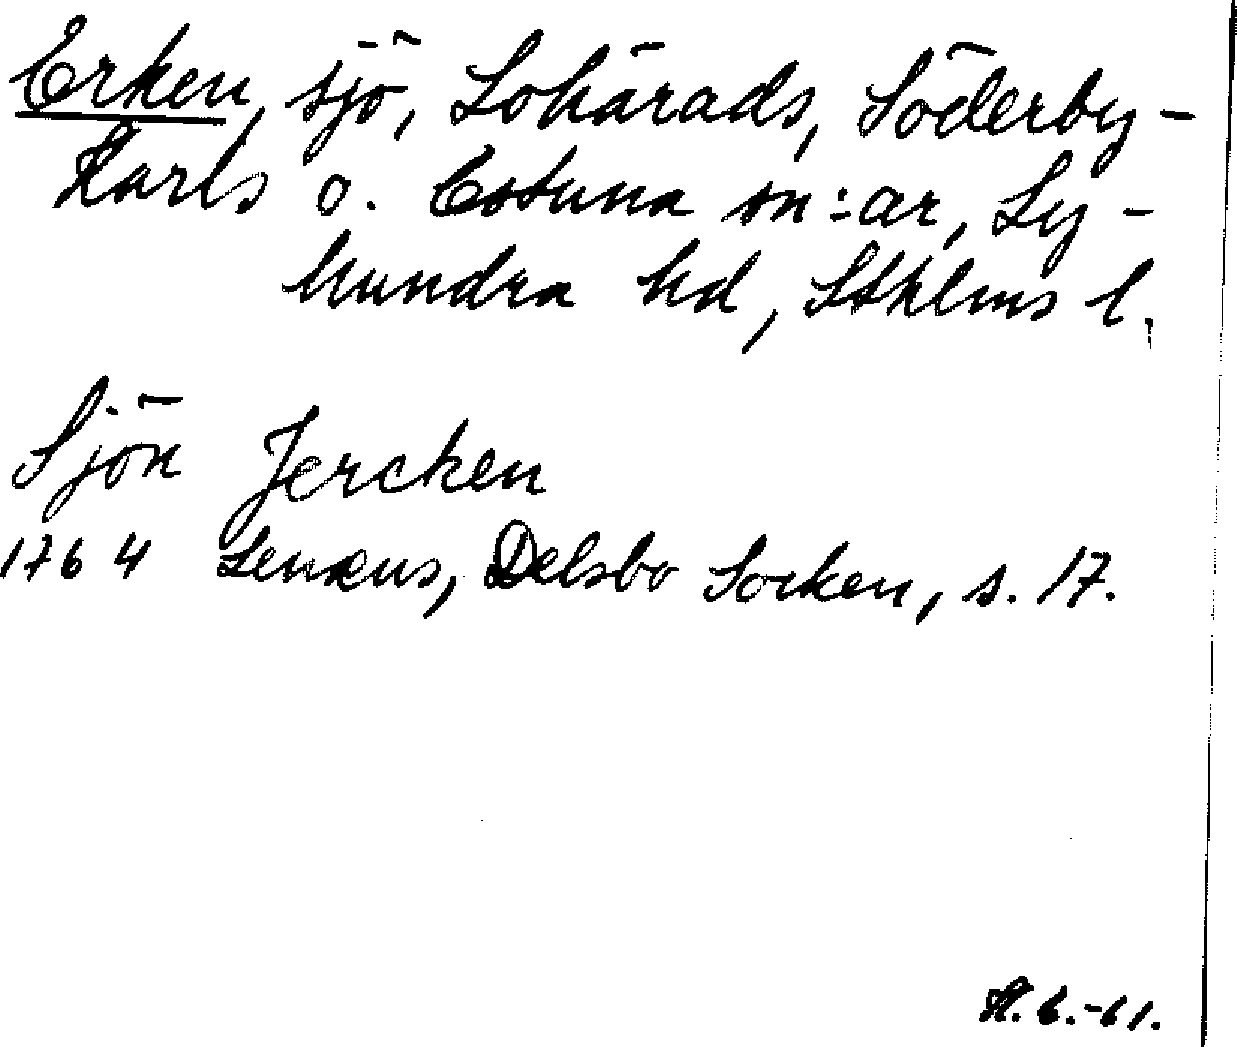 Erken, sjö, Lohärads, Söderby-
Karls o. Estuna sn:ar, Ly-
hundra hd, Sthlms l.
Sjön Jercken
1764 Lenæus, Delsbo Socken, s. 17.